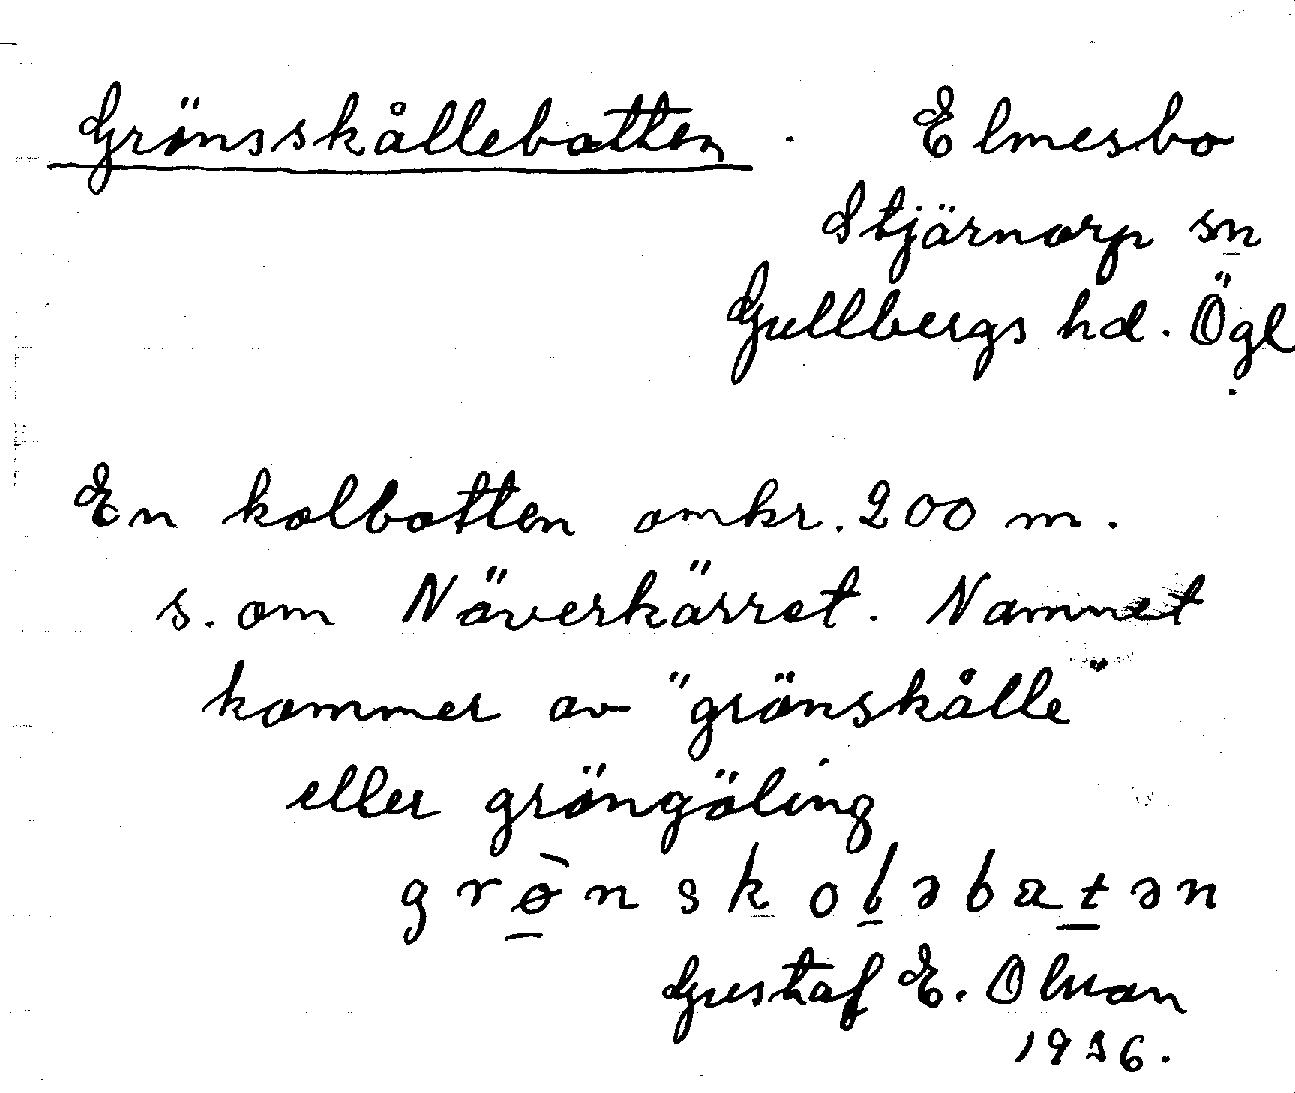 Grönsskållebotten. Elmesbo
Stjärnorp sn
Gullbergs hd. Ögl.
En kolbotten omkr. 200 m.
s. om Näverkärret. Namnet
kommer av "grönskålle"
eller gröngöling
grø̀nskoləbatən
Gustaf E. Olman
1936.